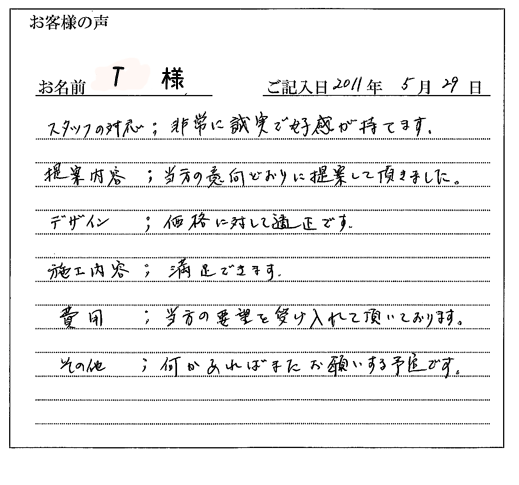 お客様の声
お名前 T 様 ご記入日 2011年 5月 29日
スタッフの対応 ; 非常に誠実で好感が持てます。
提案内容 ; 当方の意向どおりに提案して頂きました。
デザイン ; 価格に対して適正です。
施工内容 ; 満足できます。
費用 ; 当方の要望を受け入れて頂いております。
その他 ; 何かあればまたお願いする予定です。